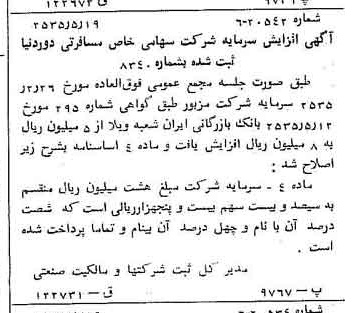 شماره ۲۰۵۴۲-۶ ۲۵۳۵/۵/۱۹
آگهی افزایش سرمایه شرکت سهامی خاص مسافرتی دوردنیا
ثبت شده بشماره ۸۳۴۰
طبق صورت جلسه مجمع عمومی فوق‌العاده مورخ ۲ر۲ر۲۶
۲۵۳۵ سرمایه شرکت مزبور طبق گواهی شماره ۲۹۵ مورخ
۲۵۳۵/۵/۱۲ بانک بازرگانی ایران شعبه ویلا از ۵ میلیون ریال
به ۸ میلیون ریال افزایش یافت و ماده ٤ اساسنامه بشرح زیر
اصلاح شد :
ماده ٤ - سرمایه شرکت مبلغ هشت میلیون ریال منقسم
به سیصد و بیست سهم بیست و پنجهزارریالی است که شصت
درصد آن با نام و چهل درصد آن بینام و تماما پرداخت شده
است .
مدیر کل ثبت شرکتها و مالکیت صنعتی
پ — ۹۷۶۷ ق — ۱۲۲۷۳۱